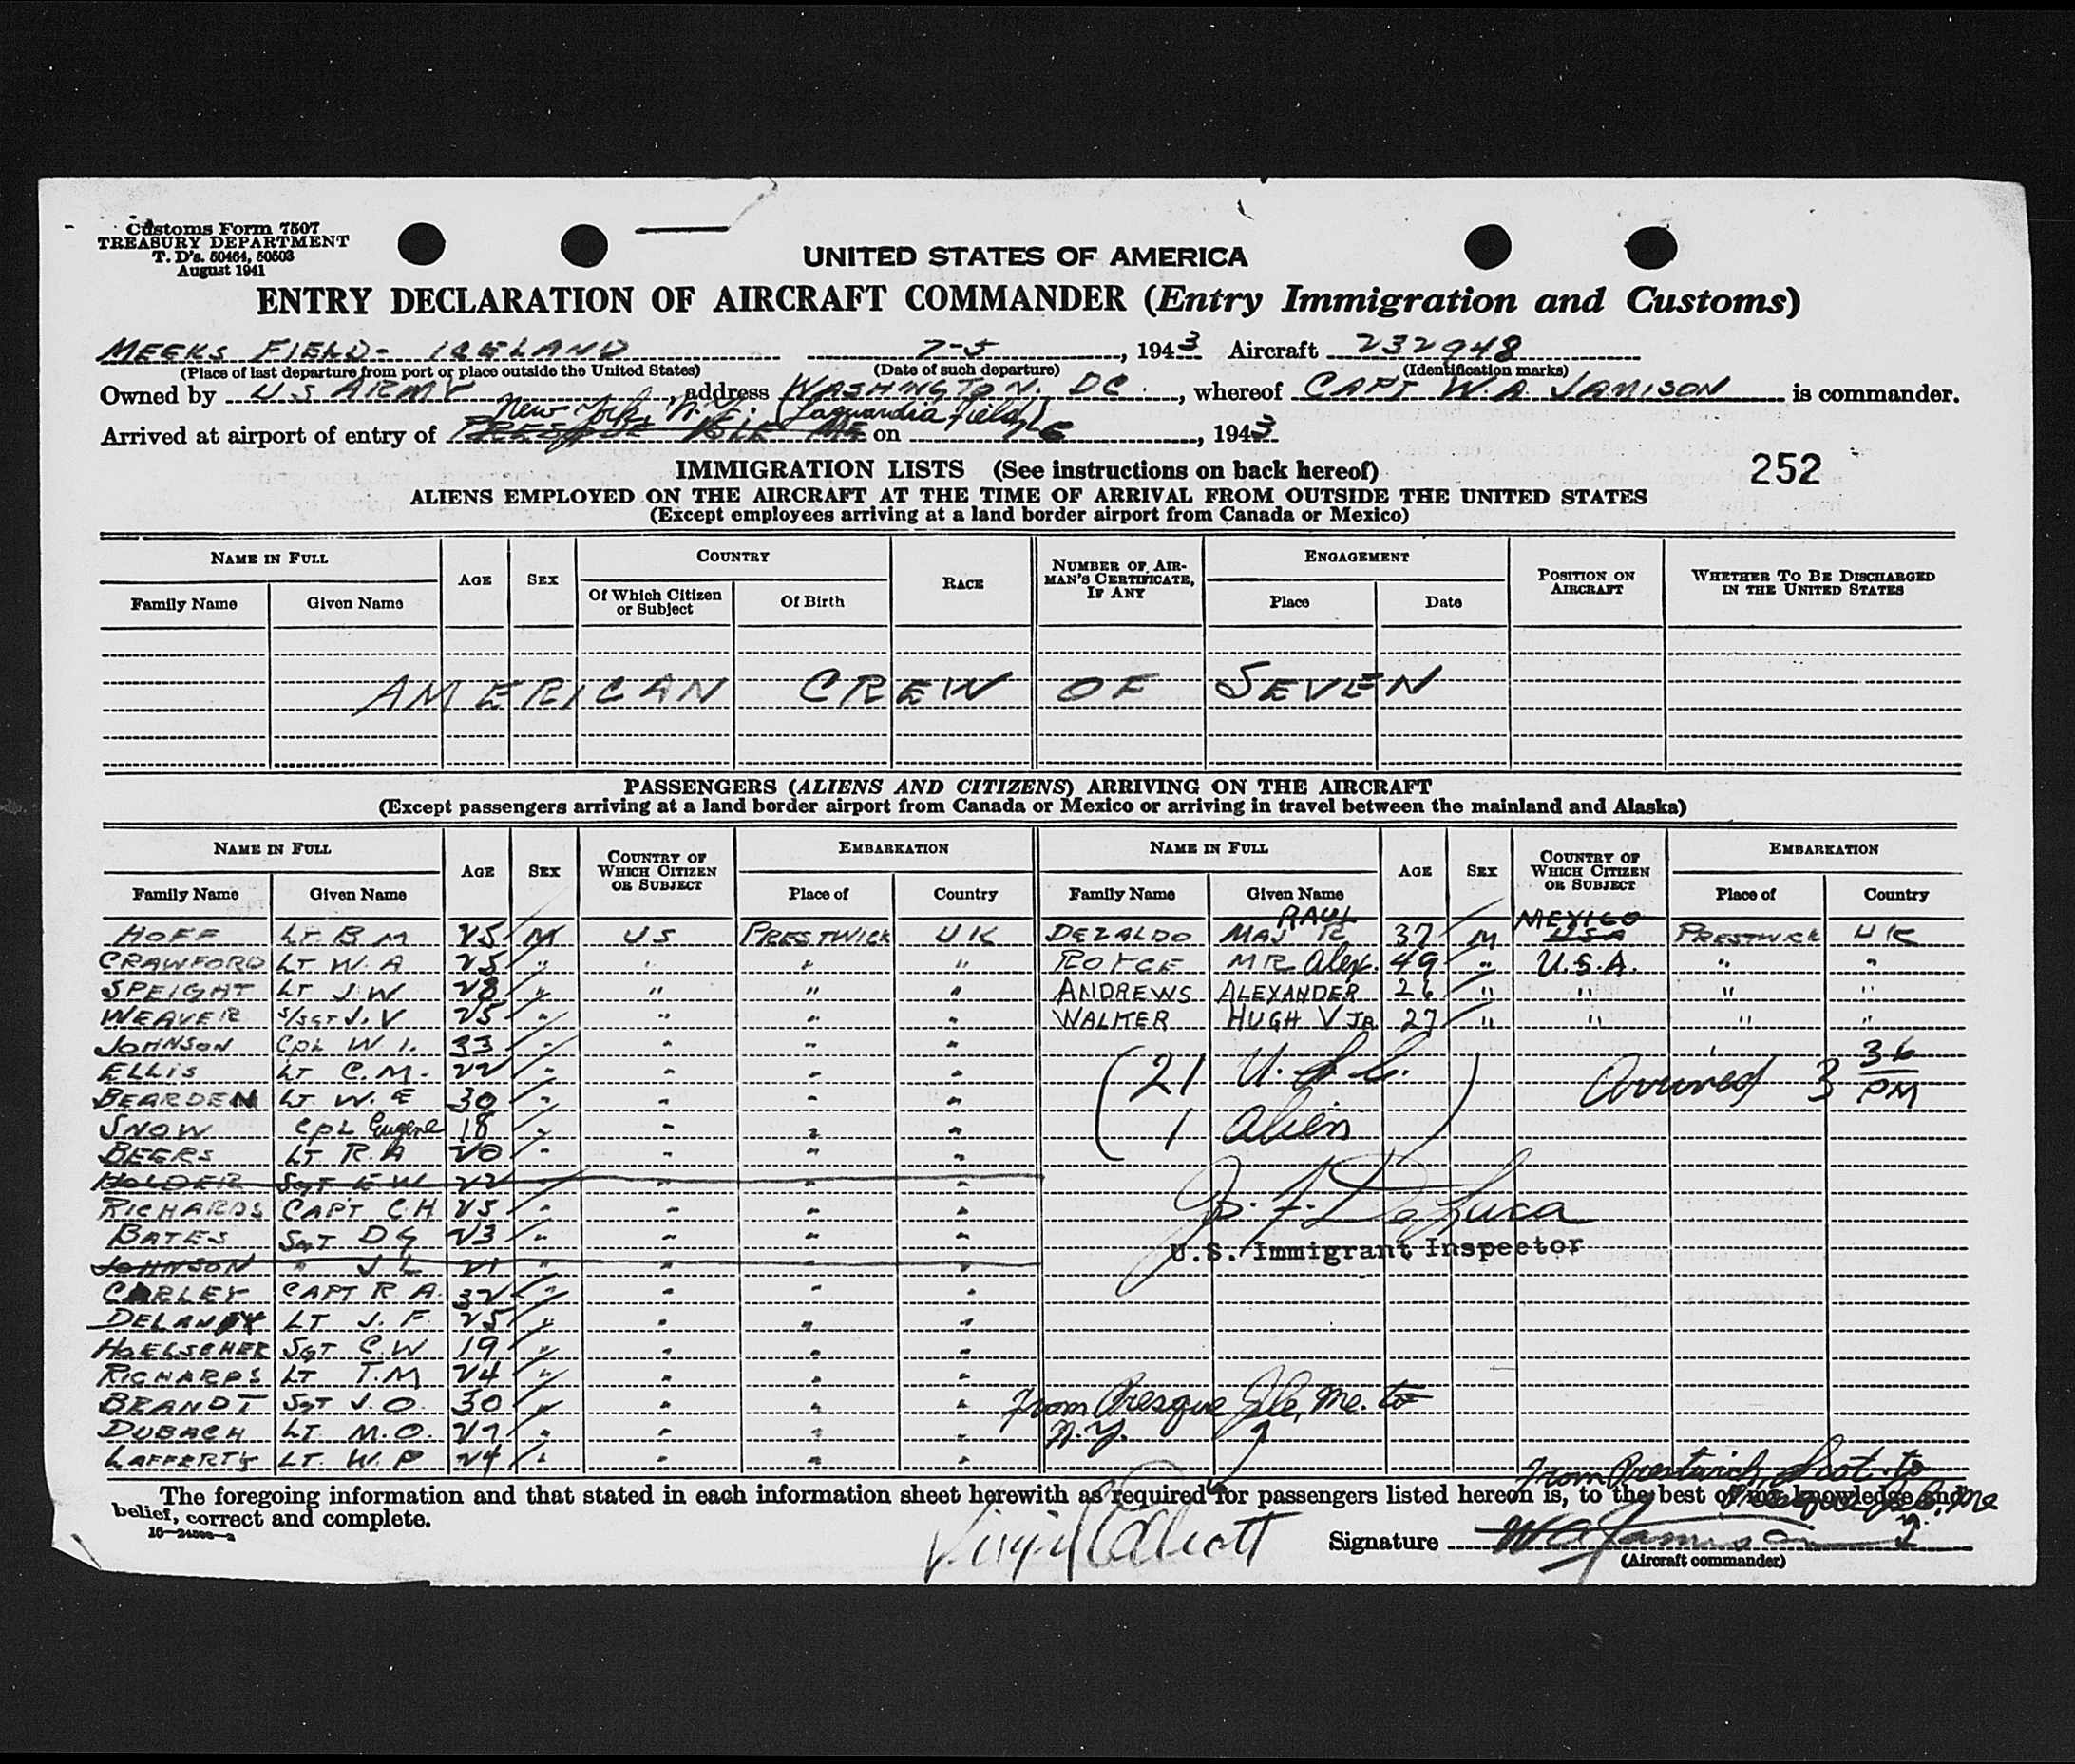 Customs Form 7507
TREASURY DEPARTMENT
T. D's. 50464, 50503
August 1941
UNITED STATES OF AMERICA
ENTRY DECLARATION OF AIRCRAFT COMMANDER (Entry Immigration and Customs)
MEEKS FIELD - ICELAND 7-5, 1943 Aircraft 232948
(Place of last departure from port or place outside the United States) (Date of such departure) (Identification marks)
Owned by US ARMY, address WASHINGTON. DC., whereof CAPT W.A. JAMISON is commander.
New York, N.Y. (Laguardia Field)
Arrived at airport of entry of PRESQUE ISLE ME on 7/6, 1943
IMMIGRATION LISTS (See instructions on back hereof) 252
ALIENS EMPLOYED ON THE AIRCRAFT AT THE TIME OF ARRIVAL FROM OUTSIDE THE UNITED STATES
(Except employees arriving at a land border airport from Canada or Mexico)
NAME IN FULL AGE SEX COUNTRY RACE NUMBER OF AIRMAN'S CERTIFICATE, IF ANY ENGAGEMENT POSITION ON AIRCRAFT WHETHER TO BE DISCHARGED IN THE UNITED STATES
Family Name Given Name Of Which Citizen or Subject Of Birth Place Date
AMERICAN CREW OF SEVEN
PASSENGERS (ALIENS AND CITIZENS) ARRIVING ON THE AIRCRAFT
(Except passengers arriving at a land border airport from Canada or Mexico or arriving in travel between the mainland and Alaska)
NAME IN FULL AGE SEX COUNTRY OF WHICH CITIZEN OR SUBJECT EMBARKATION NAME IN FULL AGE SEX COUNTRY OF WHICH CITIZEN OR SUBJECT EMBARKATION
Family Name Given Name Place of Country Family Name Given Name Place of Country
RAUL MEXICO
HOFF LT. B M 25 M US PRESTWICK UK DEZALDO MAJ R 37 M USA PRESTWICK UK
CRAWFORD LT W. A 25 " " " " ROYCE MR Alex. 49 " U.S.A. " "
SPEIGHT LT J.W 28 " " " " ANDREWS ALEXANDER 26 " " " "
WEAVER S/SGT J. V 25 " " " " WALKER HUGH V JR 27 " " " "
JOHNSON CPL W. I. 33 " " " "
ELLIS LT C.M. 22 " " " " (21 U.S.C. Arrived 3 36 PM
BEARDEN LT W. E 30 " " " "
SNOW CPL Eugene 18 " " " " 1 alien)
BEERS LT R. A 20 " " " "
HOLDER SGT E W 22 " " " "
RICHARDS CAPT C H 25 " " " " J. F. DeLuca
BATES SGT D G 23 " " " " U.S. Immigrant Inspector
JOHNSON " J L 21 " " " "
CARLEY CAPT R A. 32 " " " "
DELANEY LT J. F. 25 " " " "
HOELSCHER SGT C. W 19 " " " "
RICHARDS LT T. M 24 " " " "
BRANDT SGT J. O. 30 " " " " From Presque Isle, Me. to
DUBACH LT. M. O. 27 " " " " N.Y.
LAFFERTY LT. W. P 24 " " " "
From Prestwick, Scot. to
Presque Is., Me
The foregoing information and that stated in each information sheet herewith as required for passengers listed hereon is, to the best of my knowledge and
belief, correct and complete.
Signature W A Jamison
(Aircraft commander)